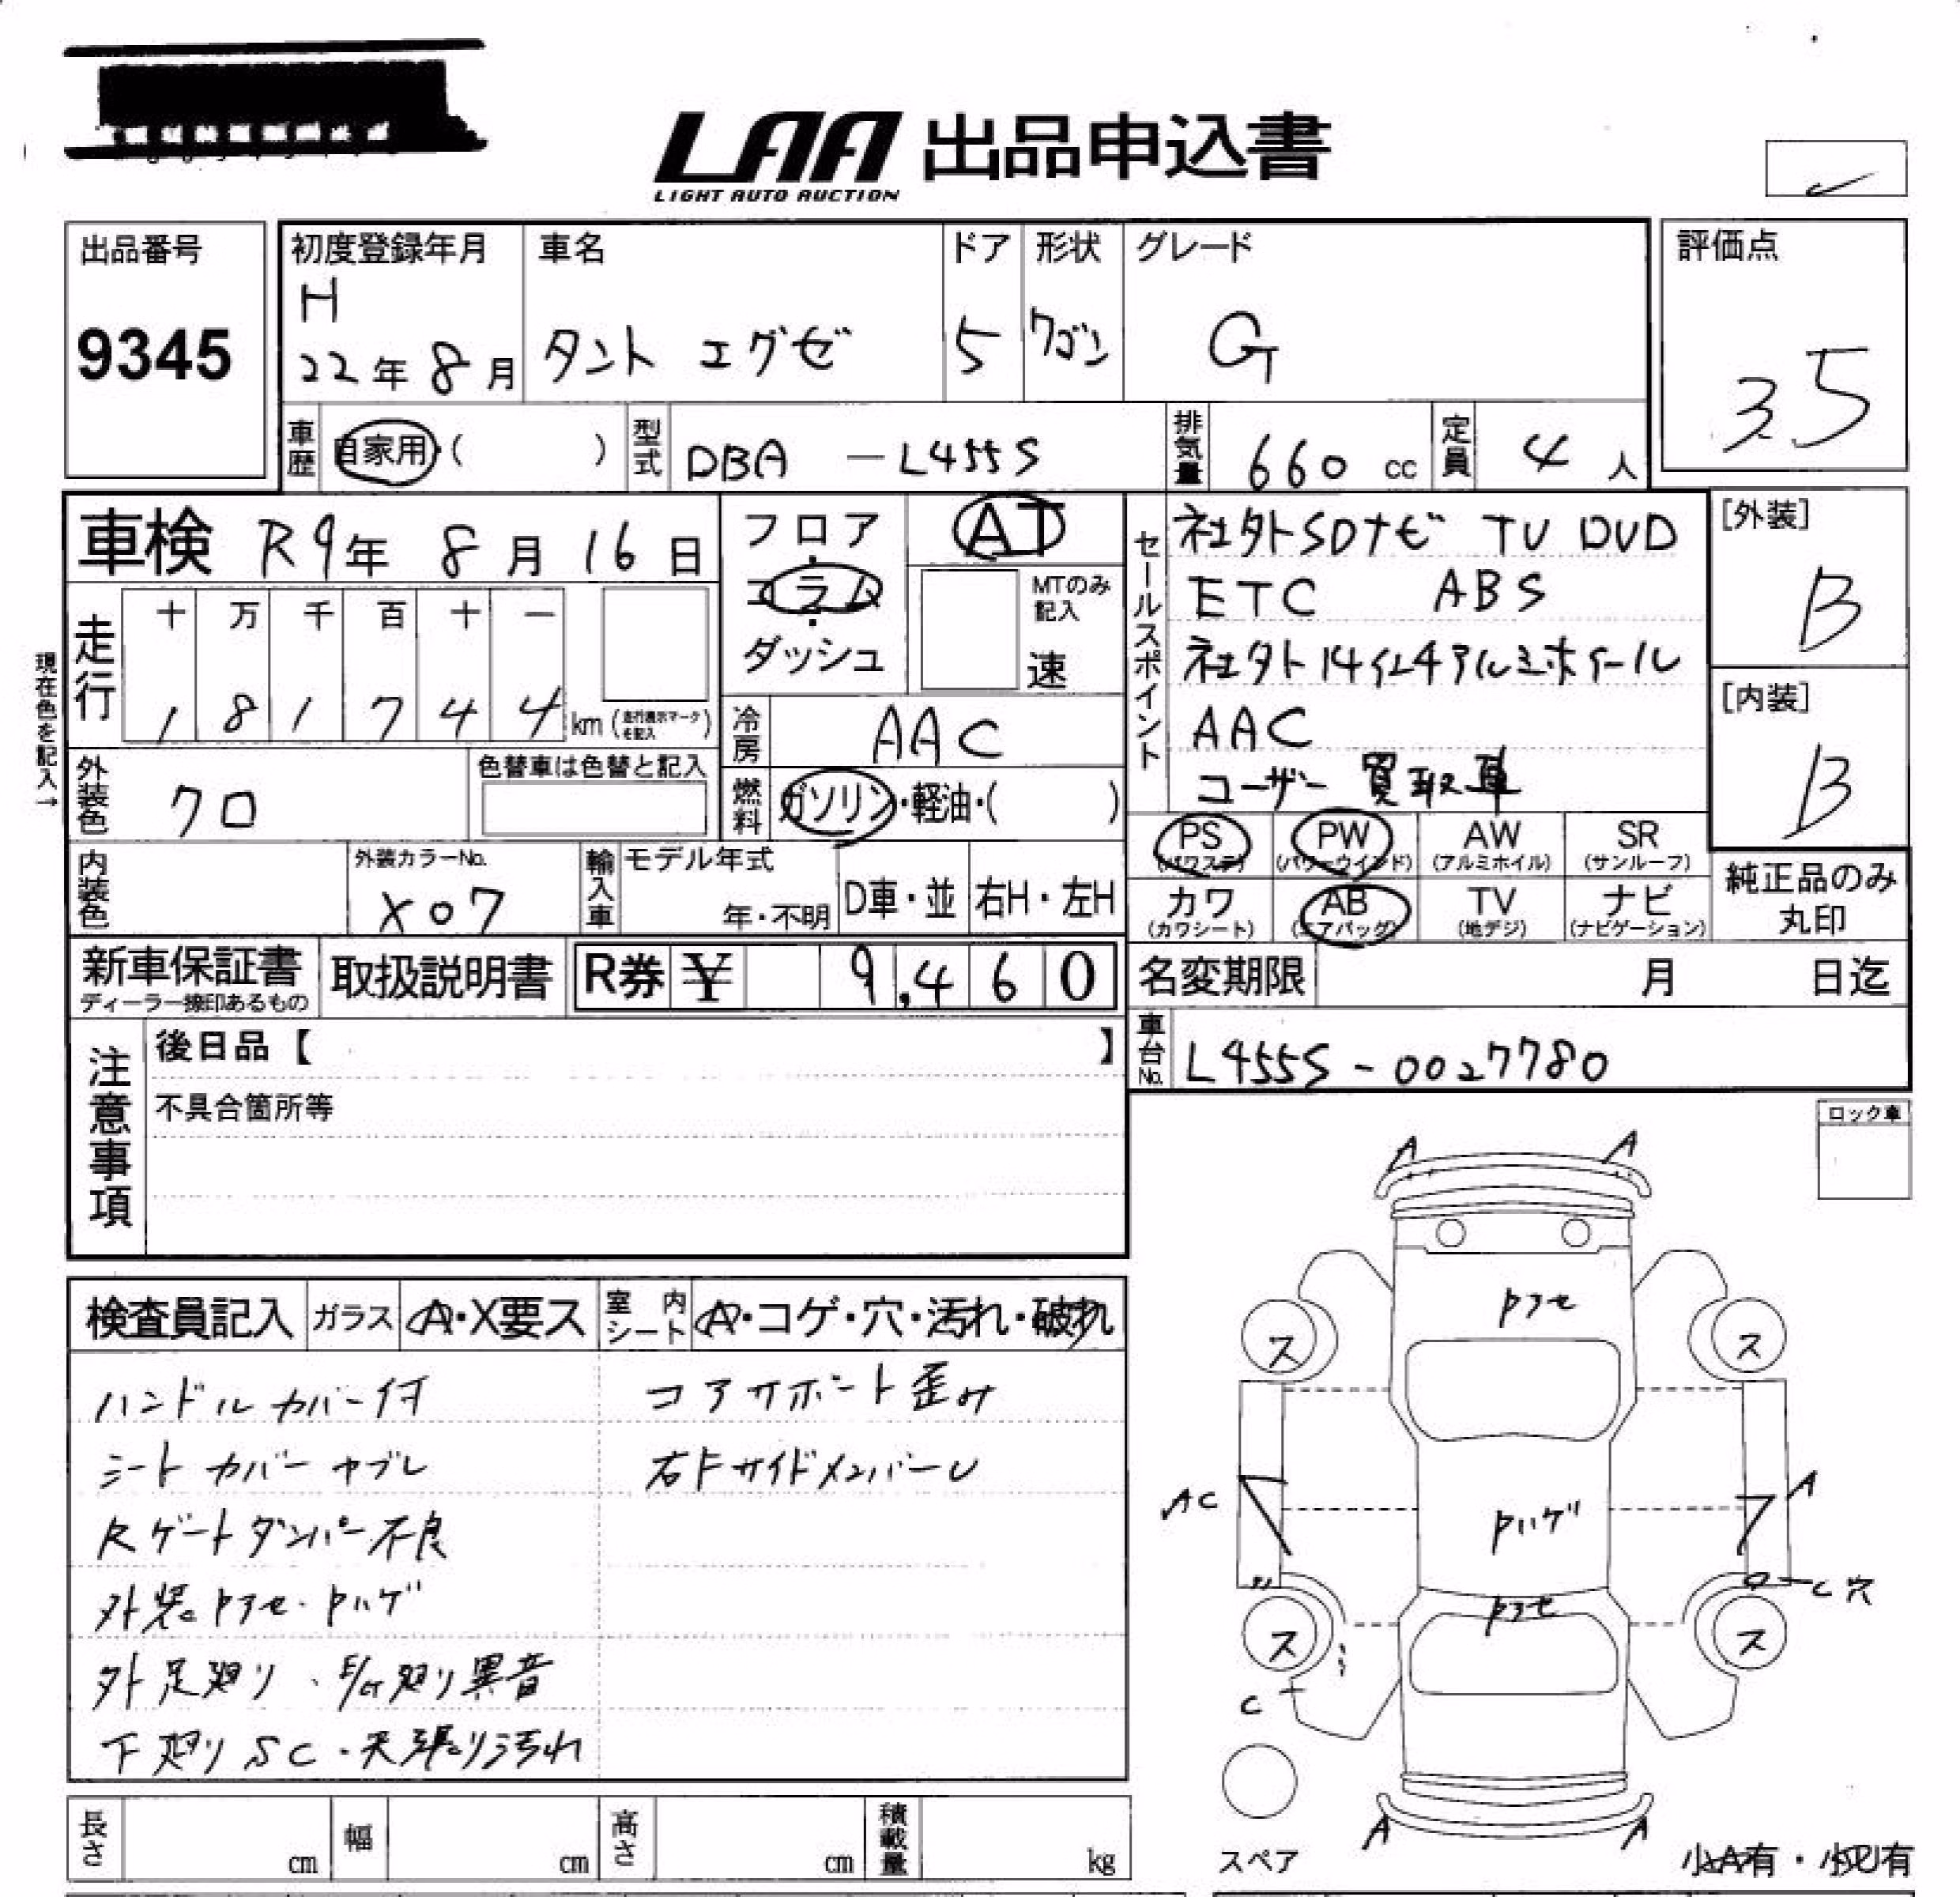 LAA 出品申込書
LIGHT AUTO AUCTION
出品番号
9345
初度登録年月
H
22年 8月
車名
タント エグゼ
ドア
5
形状
ワゴン
グレード
G
評価点
3.5
車歴
自家用・( )
型式
DBA -L455S
排気量
660 cc
定員
4 人
車検 R9年 8月 16日
フロア
・
コラム
・
ダッシュ
AT
MTのみ記入
速
セールスポイント
社外SDナビ TV DVD
ETC ABS
社外14インチアルミホイール
AAC
ユーザー買取車
[外装]
B
[内装]
B
現在色を記入→
走行
十 万 千 百 十 一
1 8 1 7 4 4 km (走行表示マークを記入)
冷房
AAC
外装色
クロ
色替車は色替と記入
燃料
ガソリン・軽油・( )
内装色
外装カラーNo.
X07
輸入車
モデル年式
年・不明
D車・並
右H・左H
PS
(パワステ)
PW
(パワーウインド)
AW
(アルミホイル)
SR
(サンルーフ)
カワ
(カワシート)
AB
(エアバッグ)
TV
(地デジ)
ナビ
(ナビゲーション)
純正品のみ
丸印
新車保証書
ディーラー捺印あるもの
取扱説明書
R券 ¥ 9,460
名変期限 月 日迄
車台No.
L455S-0027780
注意事項
後日品【 】
不具合箇所等
ロック車
検査員記入
ガラス
A・X要ス
室内シート
A・コゲ・穴・汚れ・破れ
ハンドルカバー付
シートカバーヤブレ
Rゲートダンパー不良
外装Pアセ・Pハゲ
外足廻り・E/G廻り異音
下廻りSC・天張り汚れ
コアサポート歪み
右FサイドメンバーU
A A
Pアセ
ス ス
AC
A
Pハゲ
C穴
Pアセ
ス ス
C
A A
スペア
小A有・小U有
長さ cm
幅 cm
高さ cm
積載量 kg